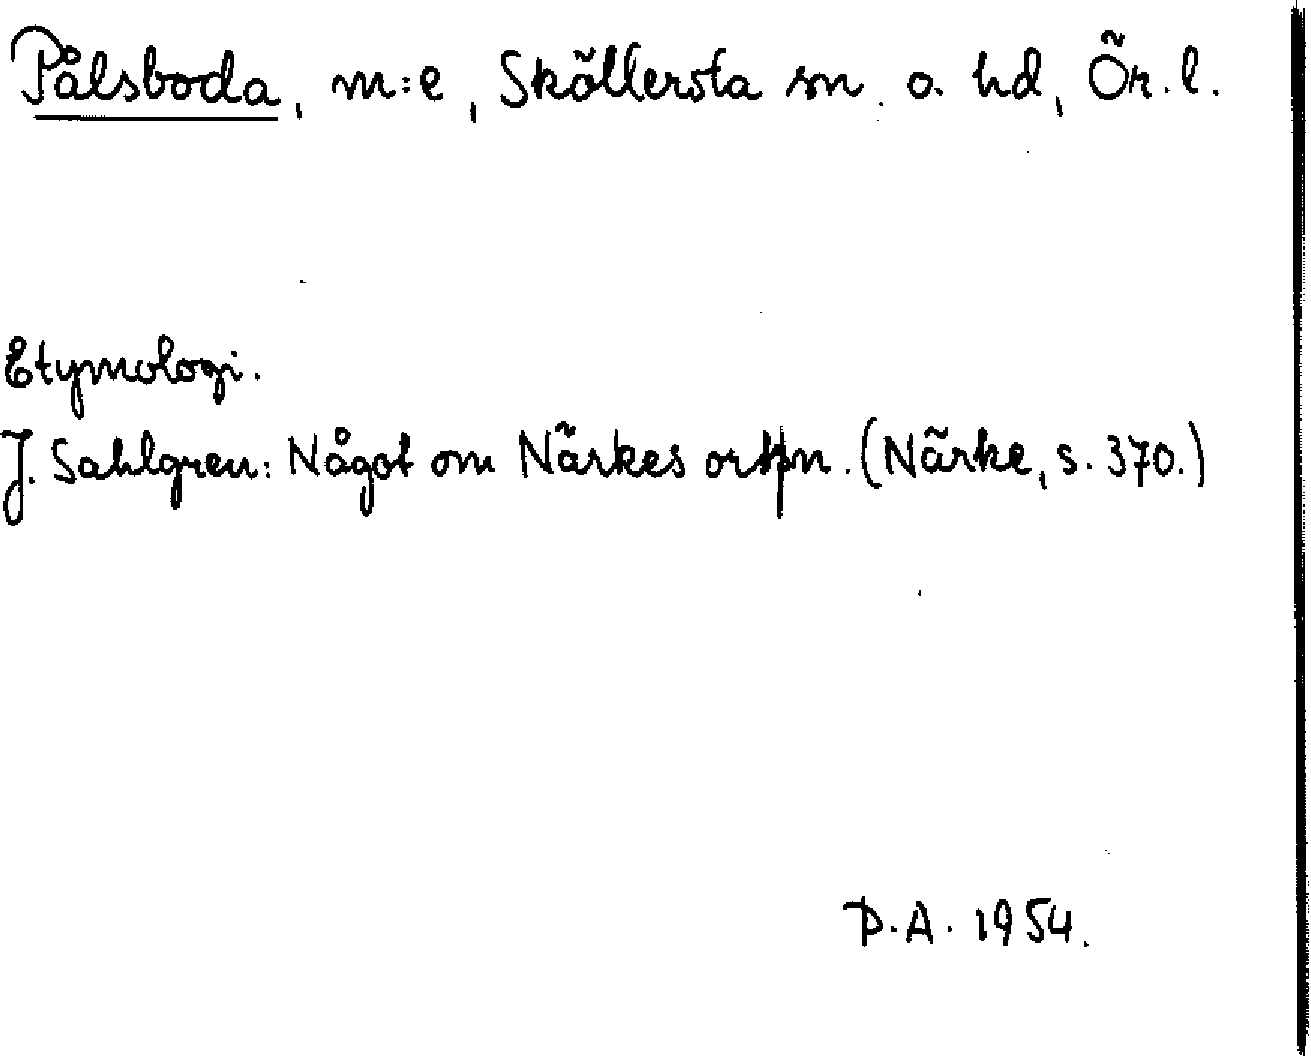 Pålsboda, m:e, Sköllersta sn. o. hd, Ör. l.
Etymologi.
J. Sahlgren: Något om Närkes ortpn. (Närke, s. 370.)
P.A. 1954.